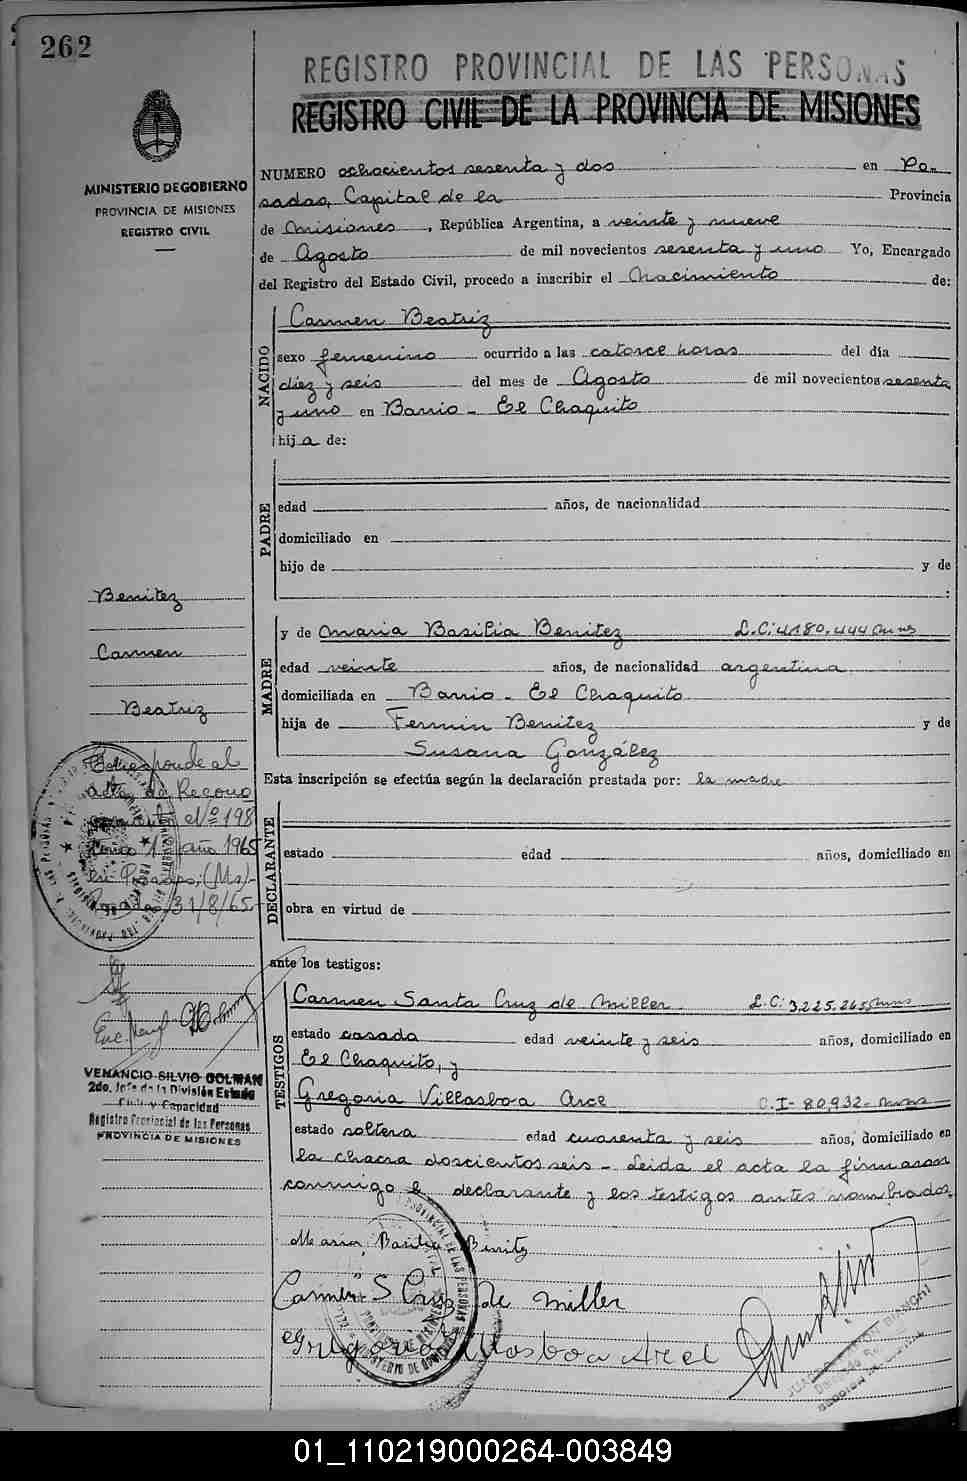 262
REGISTRO PROVINCIAL DE LAS PERSONAS
REGISTRO CIVIL DE LA PROVINCIA DE MISIONES
MINISTERIO DE GOBIERNO
PROVINCIA DE MISIONES
REGISTRO CIVIL
NUMERO ochocientos sesenta y dos en Po-
sadas, Capital de la Provincia
de Misiones, República Argentina, a veinte y nueve
de Agosto de mil novecientos sesenta y uno Yo, Encargado
del Registro del Estado Civil, procedo a inscribir el Nacimiento de:
NACIDO
Carmen Beatriz
sexo femenino ocurrido a las catorce horas del día
diez y seis del mes de Agosto de mil novecientos sesenta
y uno en Barrio - El Chaquito
hija de:
PADRE
edad años, de nacionalidad
domiciliado en
hijo de y de
:
MADRE
y de Maria Basilia Benitez L.C: 4180.444
edad veinte años, de nacionalidad argentina
domiciliada en Barrio - El Chaquito
hija de Fermin Benitez y de
Susana González
Esta inscripción se efectúa según la declaración prestada por: la madre
DECLARANTE
estado edad años, domiciliado en
obra en virtud de
ante los testigos:
TESTIGOS
Carmen Santa Cruz de Miller. L.C: 3.225.265
estado casada edad veinte y seis años, domiciliado en
El Chaquito, y
Gregoria Villasboa Arce C.I- 80,932-
estado soltera edad cuarenta y seis años, domiciliado en
la chacra doscientos seis - Leida el acta la firmaron
conmigo la declarante y los testigos antes nombrados.
Maria Basilia Benitz
Carmen S Cruz de Miller
Gregoria Villasboa Arce
Benitez
Carmen
Beatriz
Corresponde al
acta de Recono
cimiento Nº 198
Tomo 1º año 1965
en Posadas, (Ms)-
Posadas 31/8/65-
VENANCIO SILVIO GOLMAN
2do. Jefe de la División Estado
Civil y Capacidad
Registro Provincial de las Personas
PROVINCIA DE MISIONES
01_110219000264-003849